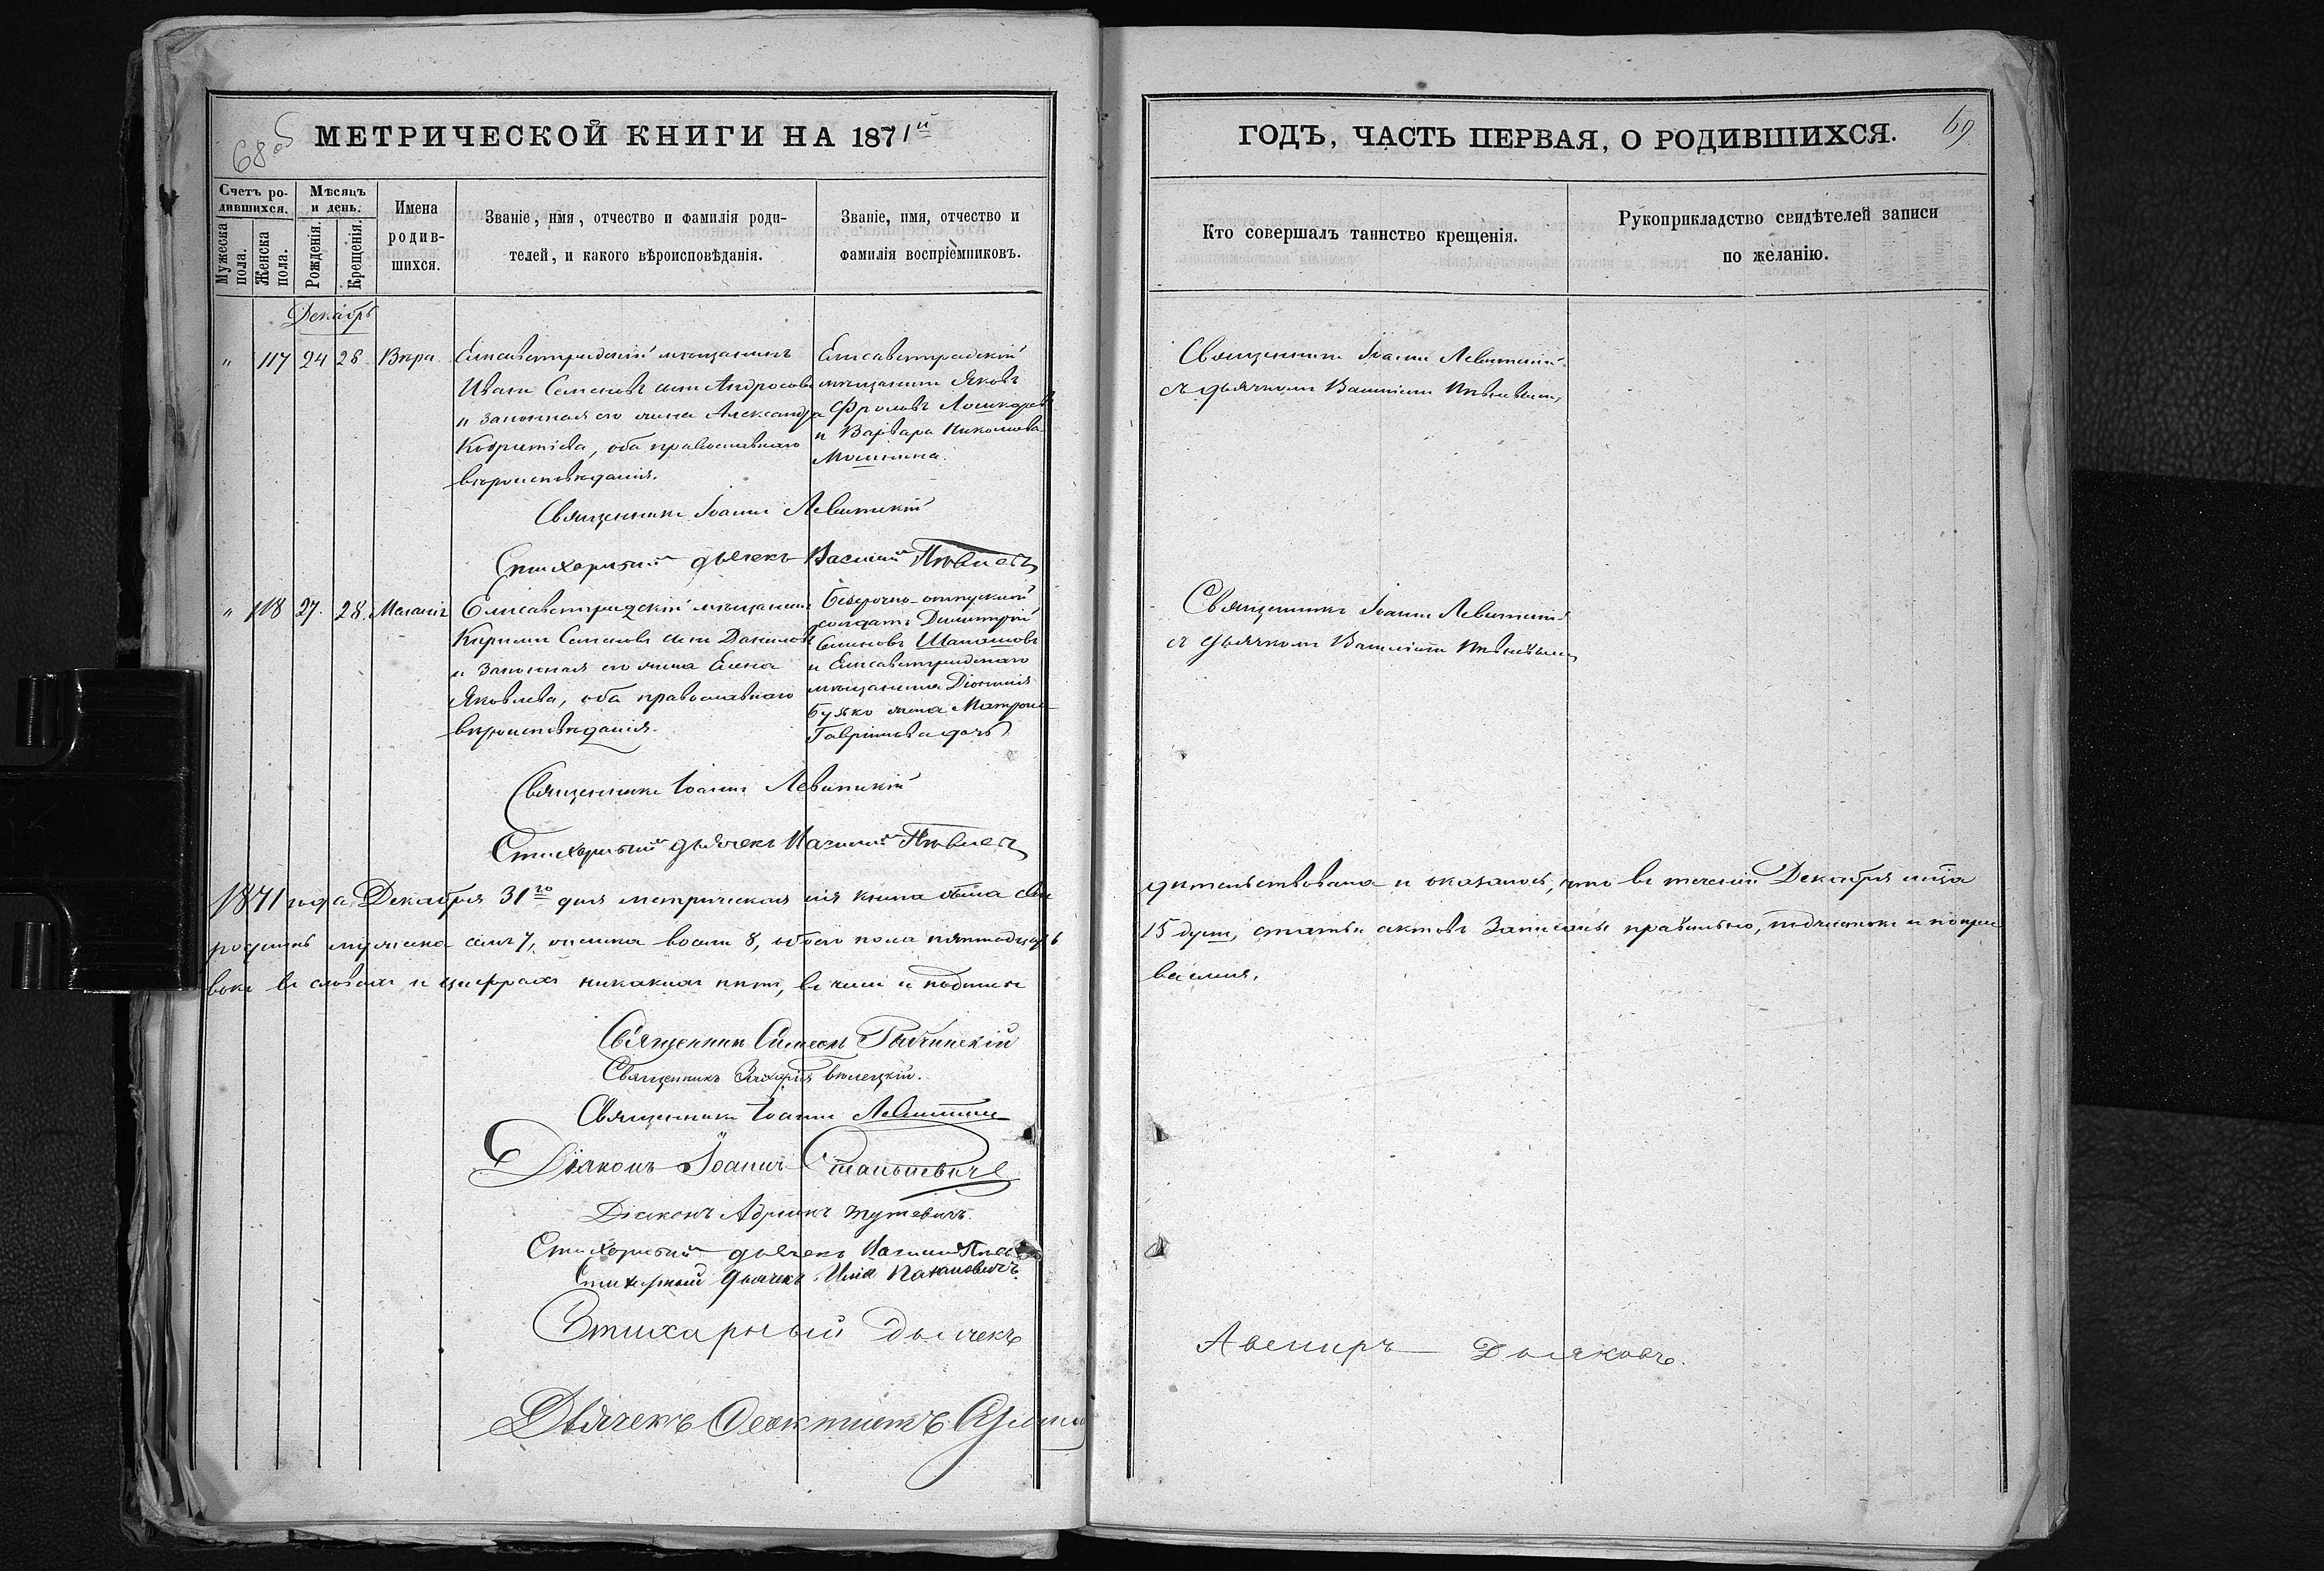 68 об
МЕТРИЧЕСКОЙ КНИГИ НА 1871й
Счетъ родившихся.
Мужеска пола.
Женска пола.
Мѣсяцъ и день.
Рожденія.
Крещенія.
Имена родившихся.
Званіе, имя, отчество и фамилія родителей, и какого вѣроисповѣданія.
Званіе, имя, отчество и фамилія воспріемниковъ.
Декабрь
" 117 24 28 Вѣра
Елисаветградскій мѣщанинъ
Иванъ Семеновъ сынъ Андросовъ
и законная его жена Александра
оба православнаго
вѣроисповѣданія.
Елисаветградскій
мѣщанинъ Яковъ
Фроловъ
и Варвара Николаева
Священникъ Іоаннъ Левитскій
Стихарный дьячекъ Василій Пѣвневъ
" 118 27. 28. Меланія
Елисаветградскій мѣщанинъ
Кирилъ Семеновъ сынъ Даниловъ
и законная его жена Елена
Яковлева, оба православнаго
вѣроисповѣданія.
Безсрочно-отпускной
солдатъ Димитрій
Семеновъ Шапошовъ
и Елисаветградскаго
мѣщанина Діонисія
Бузько жена Матрона
Гавріилова дочь
Священникъ Іоаннъ Левитскій
Стихарный дьячекъ Василій Пѣвневъ
1871 года Декабря 31го дня метрическая сія книга была сви
мужеска семь 7, женска восемь 8, обоего пола пятнадцать
вокъ въ словахъ и цифрахъ никакихъ нѣтъ, въ чемъ и подпис
Священникъ Симеонъ
Священникъ Захарія Бѣлецкій.
Священникъ Іоаннъ Левитскій
Діаконъ Іоаннъ
Діаконъ Адріанъ
Стихарный дьячекъ Василій
Стихарный дьячекъ Илія
Стихарный дьячекъ
Дьячекъ Ѳеоктистъ
ГОДЪ, ЧАСТЬ ПЕРВАЯ, О РОДИВШИХСЯ.
69
Кто совершалъ таинство крещенія.
Рукоприкладство свидѣтелей записи
по желанію.
Священникъ Іоаннъ Левитскій
съ дьячкомъ Василіемъ Пѣвневымъ
Священникъ Іоаннъ Левитскій
съ дьячкомъ Василіемъ Пѣвневымъ
дѣтельствована и оказалось, что въ теченіи Декабря мца
15 душъ, статьи актовъ записаны правильно, подчистокъ и попра
ваемся.
Авениръ Дьяковъ.